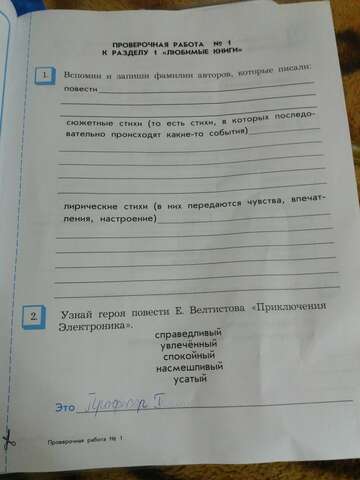 ПРОВЕРОЧНАЯ РАБОТА № 1
К РАЗДЕЛУ 1 «ЛЮБИМЫЕ КНИГИ»
1. Вспомни и запиши фамилии авторов, которые писали:
повести
сюжетные стихи (то есть стихи, в которых последо-
вательно происходят какие-то события)
лирические стихи (в них передаются чувства, впечат-
ления, настроение)
2. Узнай героя повести Е. Велтистова «Приключения
Электроника».
справедливый
увлечённый
спокойный
насмешливый
усатый
Это
Проверочная работа № 1